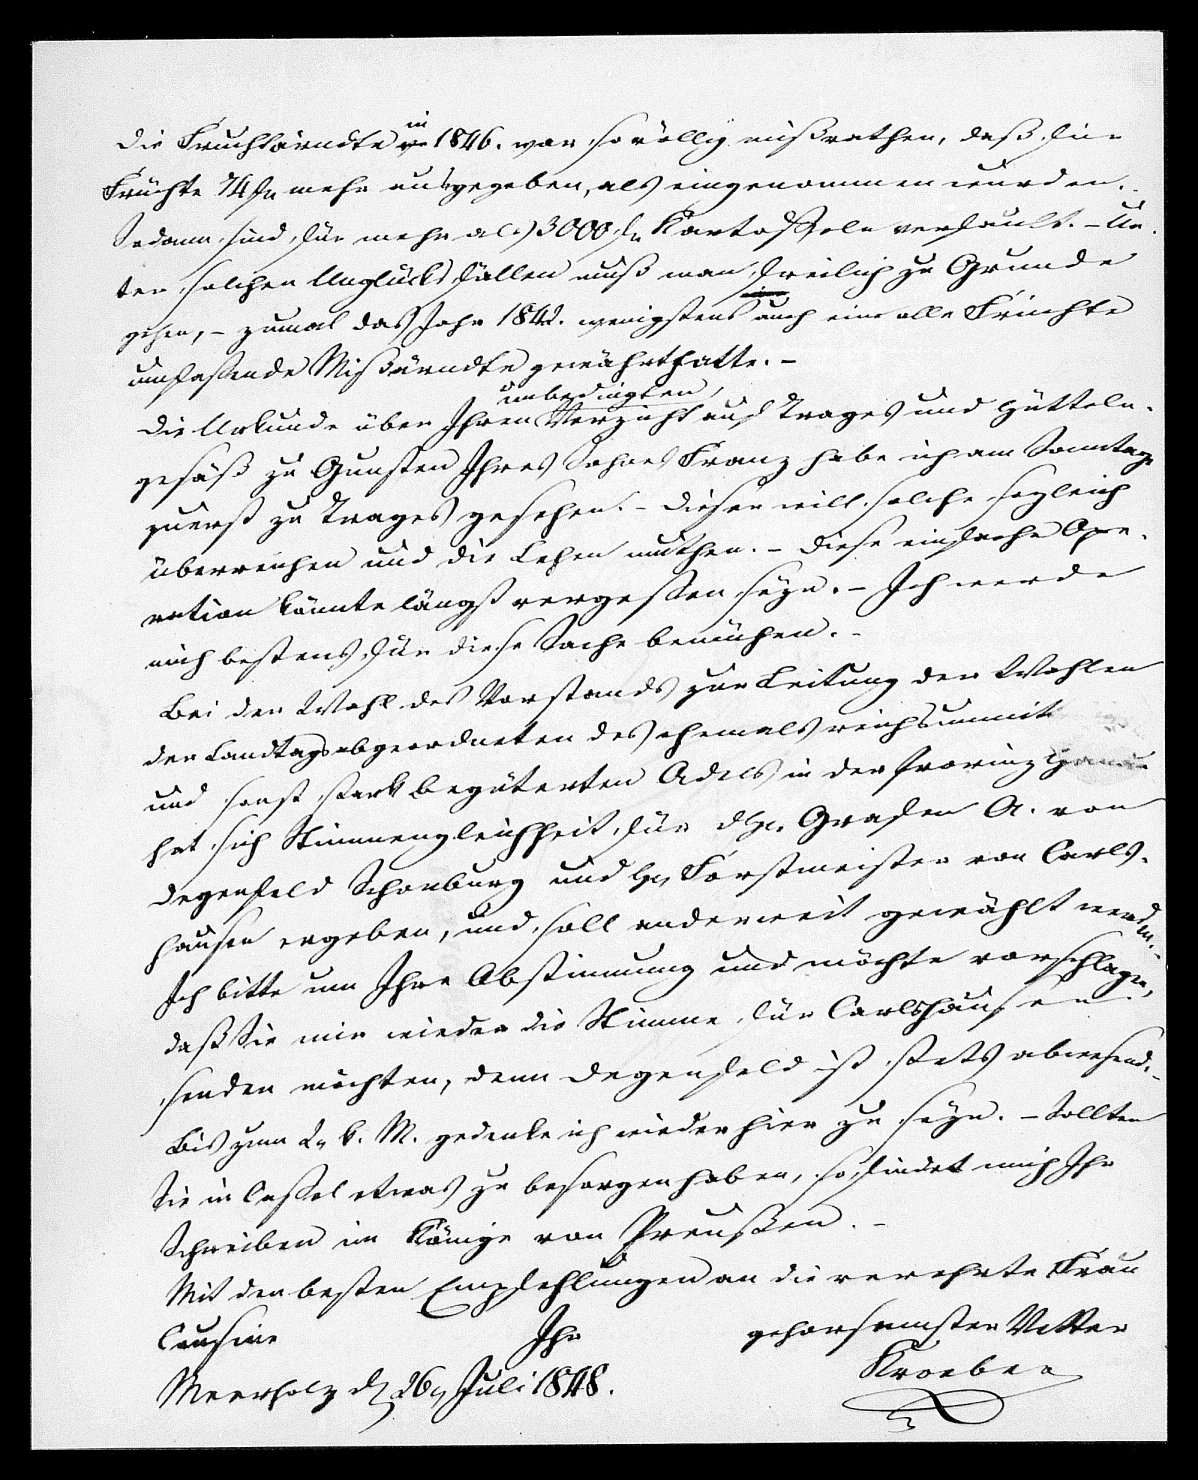 Die Fruchtärndte in 1846. war so völlig mißrathen, daß für
Früchte 74 fl mehr ausgegeben, als eingenommen wurden.
Sodann sind für mehr als 3000 fl Kartoffeln verfault. – Un-
ter solchen Unglücksfällen muß man freilich zu Grunde
gehen, – zumal das Jahr 1842. wenigstens auch eine alle Früchte
umfassende Mißärndte gewährt hatte. –
Die Urkunde über Ihren unbedingten Verzicht auf Trages und Hütteln-
gesäß zu Gunsten Ihres Sohnes Franz habe ich am Sonntage
zuerst zu Trages gesehen. – Dieser will solche sogleich
überreichen und die Lehen muthen. – Diese einfache Ope-
ration könnte längst vergessen seyn. – Ich werde
mich bestens für diese Sache bemühen. –
Bei der Wahl des Vorstands zur Leitung der Wahlen
der Landtagsabgeordneten des ehemals reichsunmit
und sonst stark begüterten Adels in der Provinz Hanau
hat sich Stimmengleichheit für Grafen A. von
Degenfeld Schonburg und Hn Forstmeister von Carls-
hausen ergeben, und soll anderweit gewählt werden. –
Ich bitte um Ihre Abstimmung und möchte vorschlagen,
daß Sie mir wieder die Stimme für Carlshausen
senden möchten, denn Degenfeld ist stets abwesend. –
Bis zum 2n k. M. gedenke ich wieder hier zu seyn. – Sollten
Sie in Cassel etwas zu besorgen haben, so findet mich Ihr
Schreiben im Könige von Preußen. –
Mit den besten Empfehlungen an die verehrte Frau
Cousine Ihr gehorsamster Vetter
Meerholz d 26n Juli 1848. Kroeber